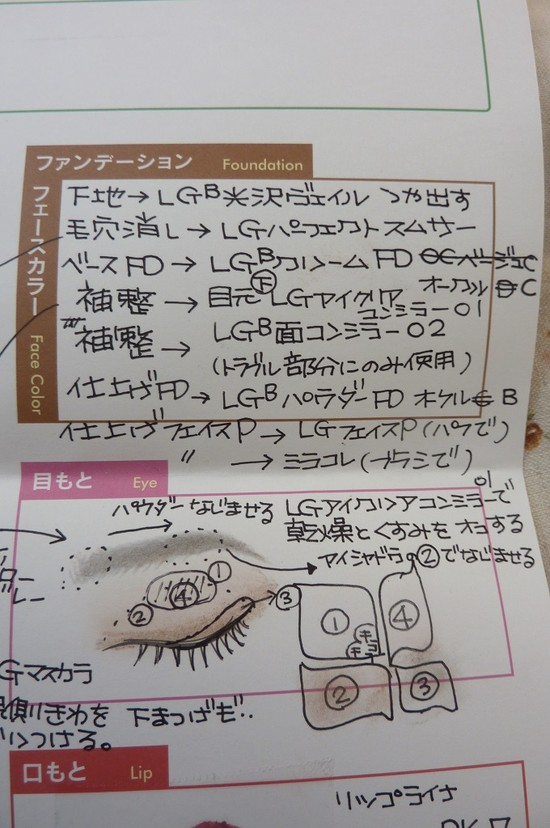 ファンデーション Foundation
フェースカラー Face Color
下地→LGB光沢ヴェイル つや出す
毛穴消し→LGパーフェクトスムサー
ベースFD→LGBクリームFD OCベージュC
オークル C
補整→目元下 LGアイクリア
コンシミラー01
補整→LGB面コンシミラー02
(トラブル部分にのみ使用)
仕上げFD→LGBパウダーFD オークル B
仕上げフェイスP→LGフェイスP(パフで)
〃 →ミラコレ(ブラシで)
目もと Eye
01
パウダーなじませる LGアイクリアコンシミラーで
乾燥とくすみをオフする
アイシャドウ②でなじませる
① ② ④ ③
① ④
② ③
マスカラ
側きわを 下まつげも‥
つける。
口もと Lip
リップライナ